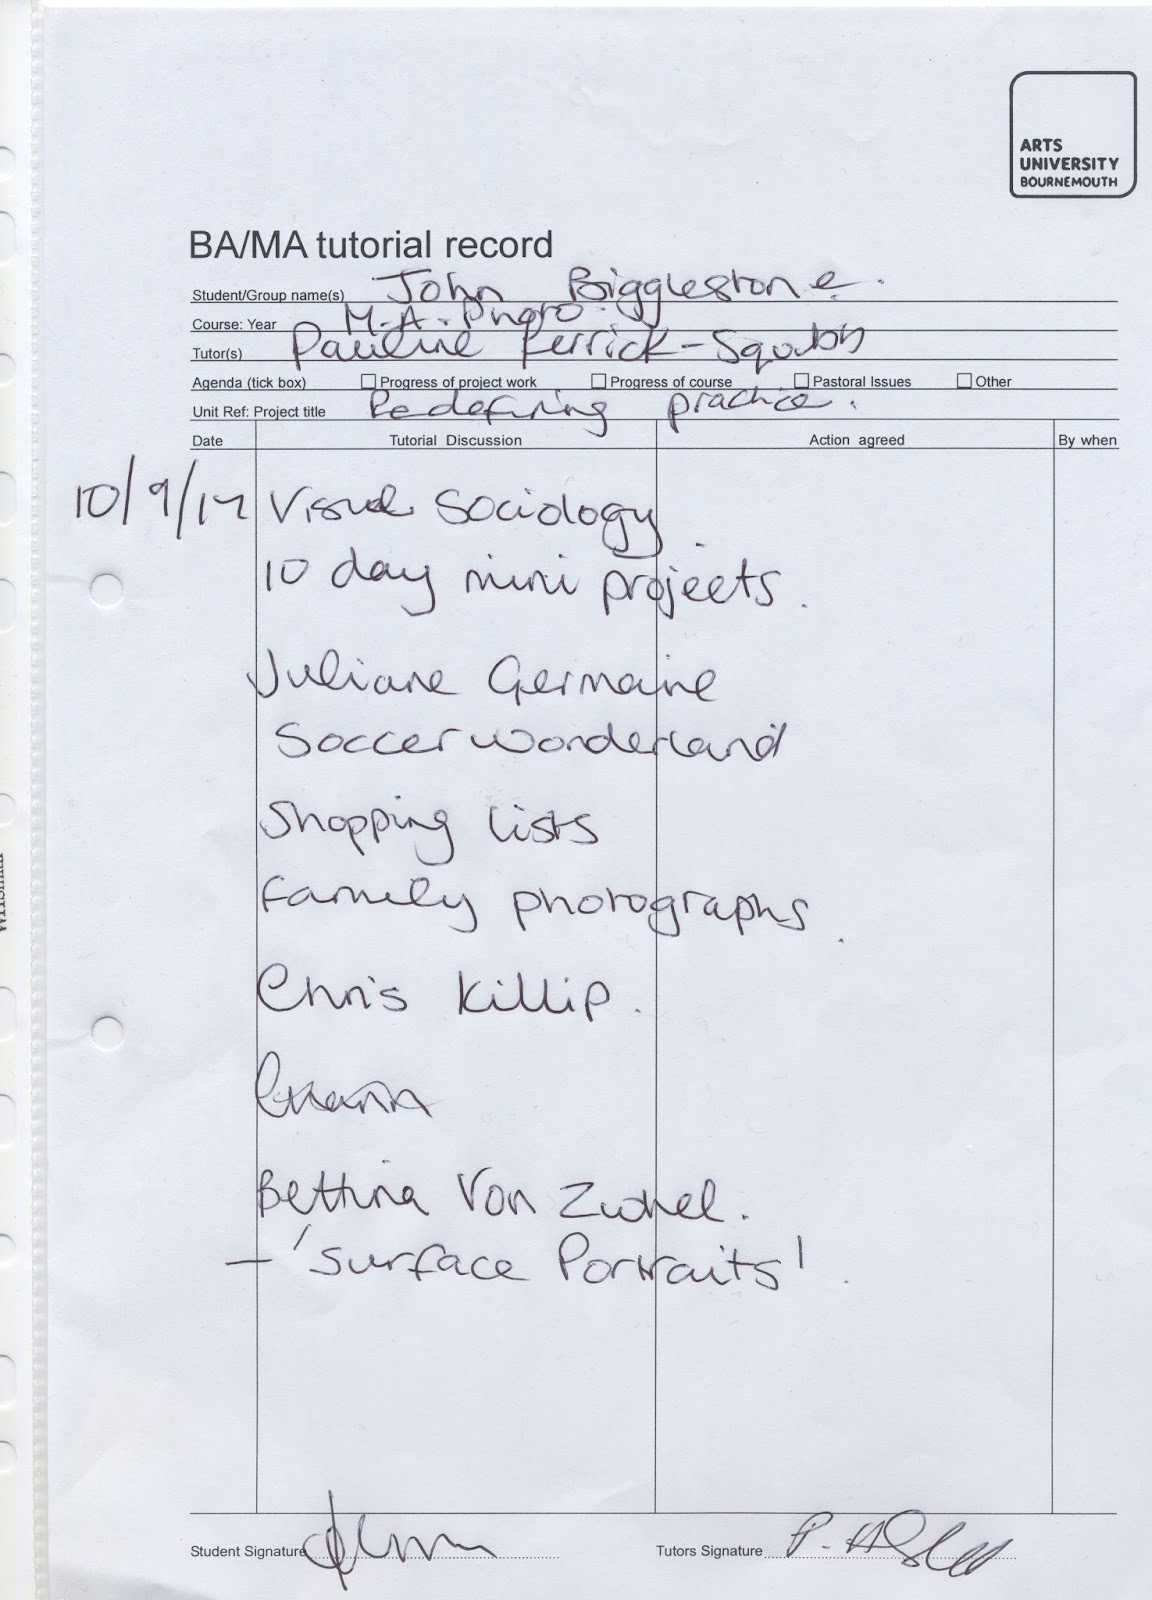 ARTS
UNIVERSITY
BOURNEMOUTH
BA/MA tutorial record
Student/Group name(s) John Bigglestone.
Course: Year M.A. Photo
Tutor(s) Pauline
Agenda (tick box) Progress of project work Progress of course Pastoral Issues Other
Unit Ref: Project title Redefining practice.
Date Tutorial Discussion Action agreed By when
Visual Sociology
10 day mini projects.
Juliane Germaine
Soccer wonderland
Shopping lists
family photographs.
Chris Killip.
Bettina Von
– 'Surface Portraits'.
Student Signature
Tutors Signature